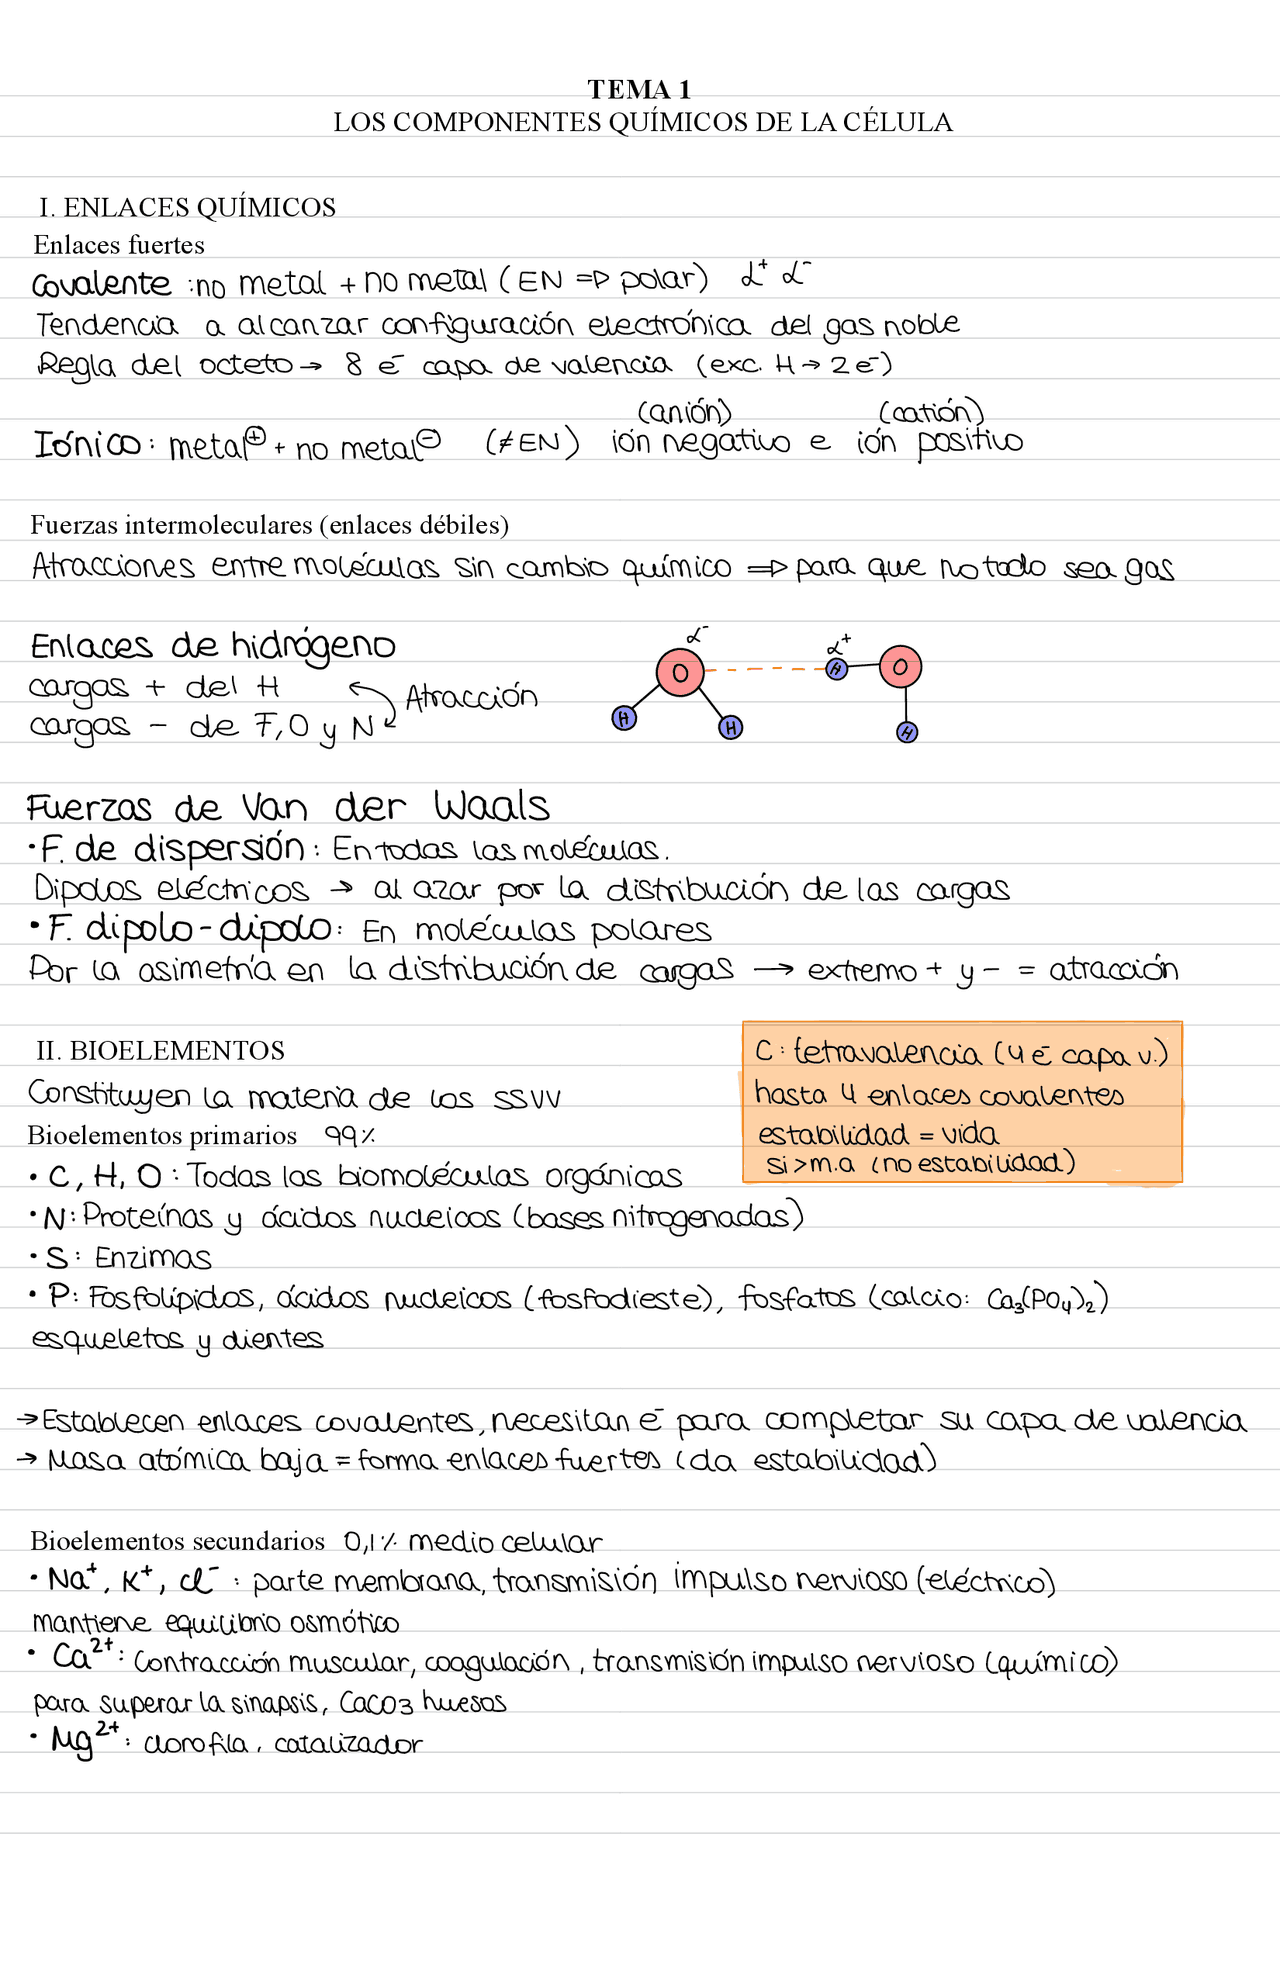 TEMA 1
LOS COMPONENTES QUÍMICOS DE LA CÉLULA
I. ENLACES QUÍMICOS
Enlaces fuertes
Covalente : no metal + no metal ( EN => polar) α⁺ α⁻
Tendencia a alcanzar configuración electrónica del gas noble
Regla del octeto → 8 e⁻ capa de valencia (exc. H → 2 e⁻)
(anión) (catión)
Iónico : metal⊕ + no metal⊖ (≠ EN) ión negativo e ión positivo
Fuerzas intermoleculares (enlaces débiles)
Atracciones entre moléculas sin cambio químico => para que no todo sea gas
Enlaces de hidrógeno
cargas + del H
cargas - de F, O y N
Atracción
α⁻ α⁺
O H O
H H H
Fuerzas de Van der Waals
• F. de dispersión : En todas las moléculas.
Dipolos eléctricos → al azar por la distribución de las cargas
• F. dipolo-dipolo : En moléculas polares
Por la asimetría en la distribución de cargas → extremo + y - = atracción
II. BIOELEMENTOS
Constituyen la materia de los SSVV
Bioelementos primarios 99%
C : tetravalencia (4 e⁻ capa v.)
hasta 4 enlaces covalentes
estabilidad = vida
si > m.a (no estabilidad)
• C, H, O : Todas las biomoléculas orgánicas
• N : Proteínas y ácidos nucleicos (bases nitrogenadas)
• S : Enzimas
• P : Fosfolípidos, ácidos nucleicos (fosfodieste), fosfatos (calcio: Ca₃(PO₄)₂)
esqueletos y dientes
→ Establecen enlaces covalentes, necesitan e⁻ para completar su capa de valencia
→ Masa atómica baja = forma enlaces fuertes (da estabilidad)
Bioelementos secundarios 0,1% medio celular
• Na⁺, K⁺, Cl⁻ : parte membrana, transmisión impulso nervioso (eléctrico)
mantiene equilibrio osmótico
• Ca²⁺ : Contracción muscular, coagulación, transmisión impulso nervioso (químico)
para superar la sinapsis, CaCO3 huesos
• Mg²⁺ : clorofila, catalizador